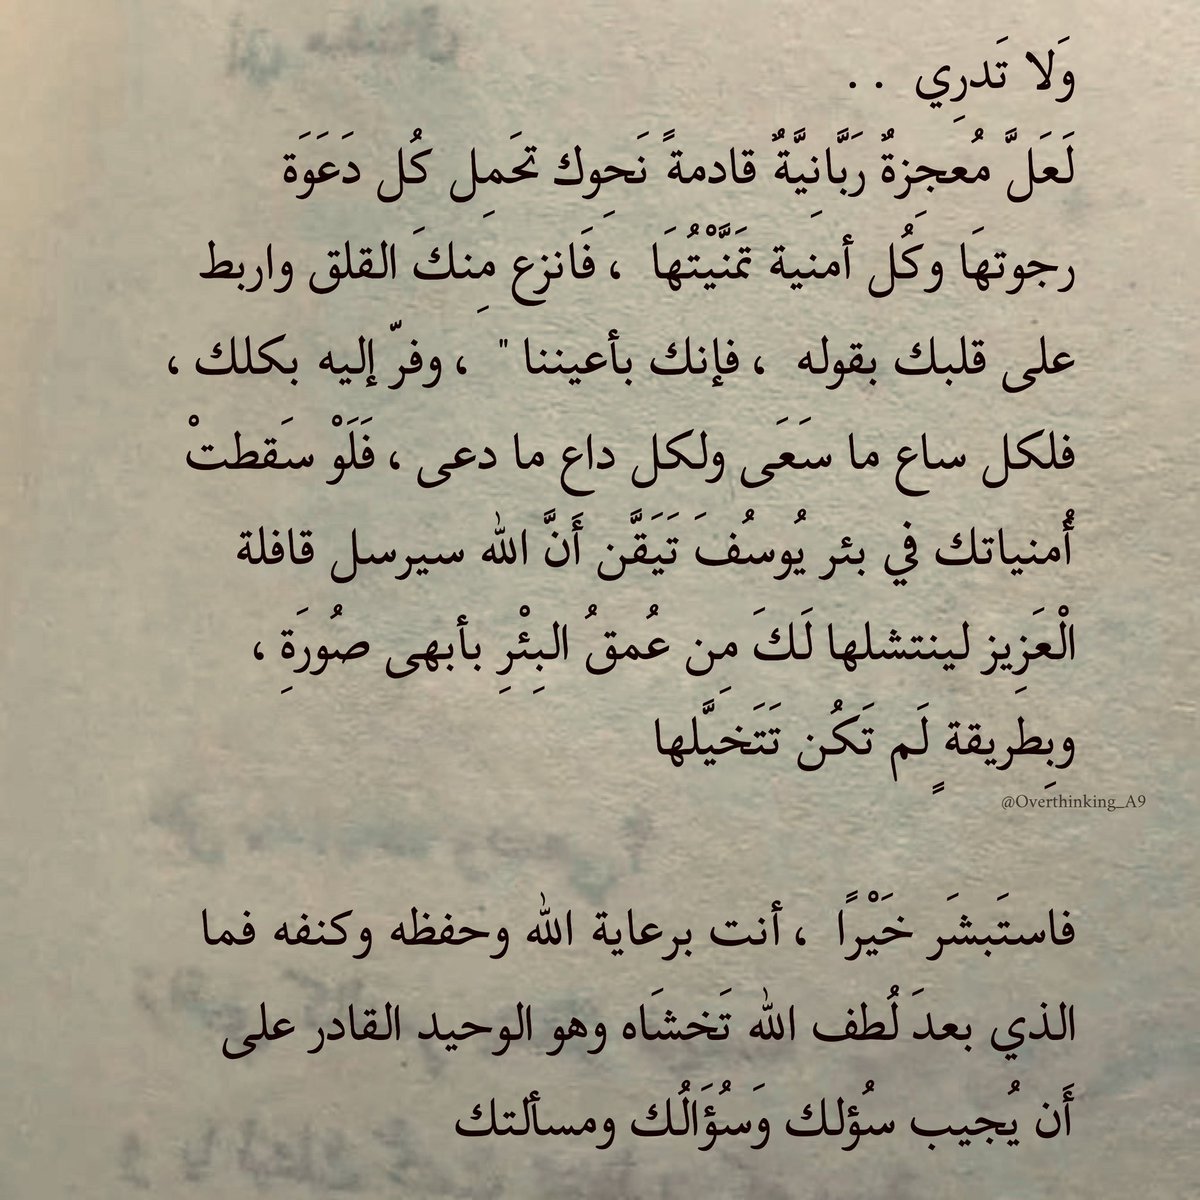 وَلا تَدرِي . .
لَعَلَّ مُعجِزةٌ رَبَّانِيَّةٌ قادمةً نَحوِك تحَمِل كُل دَعَوَة
رجوتهَا وكُل أمنية تمَنَّيْتُهَا ، فَانزع مِنكَ القلق واربط
على قلبك بقوله ، فإنك بأعيننا " ، وفرّ إليه بكلك ،
فلكل ساع ما سَعَى ولكل داع ما دعى ، فَلَوْ سَقطتْ
أُمنياتك في بئر يُوسُفَ تَيَقَّن أَنَّ الله سيرسل قافلة
الْعَزِيز لينتشلها لَكَ مِن عُمقُ البِئْرِ بأبهى صُورَةِ ،
وبِطريقةٍ لَم تَكُن تَتَخيَّلها
@Overthinking_A9
فاستَبشَر خَيْرًا ، أنت برعاية الله وحفظه وكنفه فما
الذي بعدَ لُطف الله تَخشَاه وهو الوحيد القادر على
أَن يُجيب سُؤلك وَسُؤَالُك ومسألتك